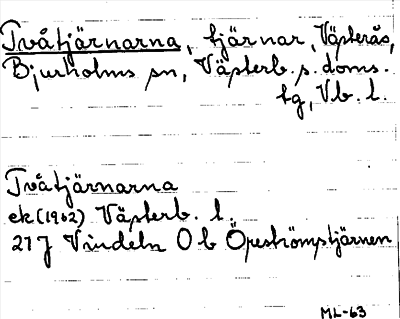 Tvåtjärnarna, tjärnar, Västerås,
Bjurholms sn, Västerb. s. doms.
tg, Vb. l.
Tvåtjärnarna
ek (1962) Västerb. l.
21 J Vindeln 0 b Öreströmstjärnen
ML-63